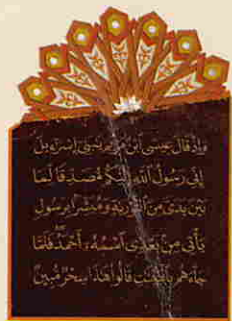 وَإِذْ قَالَ عِيسَى ابْنُ مَرْيَمَ يَٰبَنِىٓ إِسْرَٰٓءِيلَ
إِنِّى رَسُولُ ٱللَّهِ إِلَيْكُم مُّصَدِّقًا لِّمَا
بَيْنَ يَدَىَّ مِنَ ٱلتَّوْرَىٰةِ وَمُبَشِّرًا بِرَسُولٍ
يَأْتِى مِنۢ بَعْدِى ٱسْمُهُۥٓ أَحْمَدُ فَلَمَّا
جَآءَهُم بِٱلْبَيِّنَٰتِ قَالُوا۟ هَٰذَا سِحْرٌ مُّبِينٌ